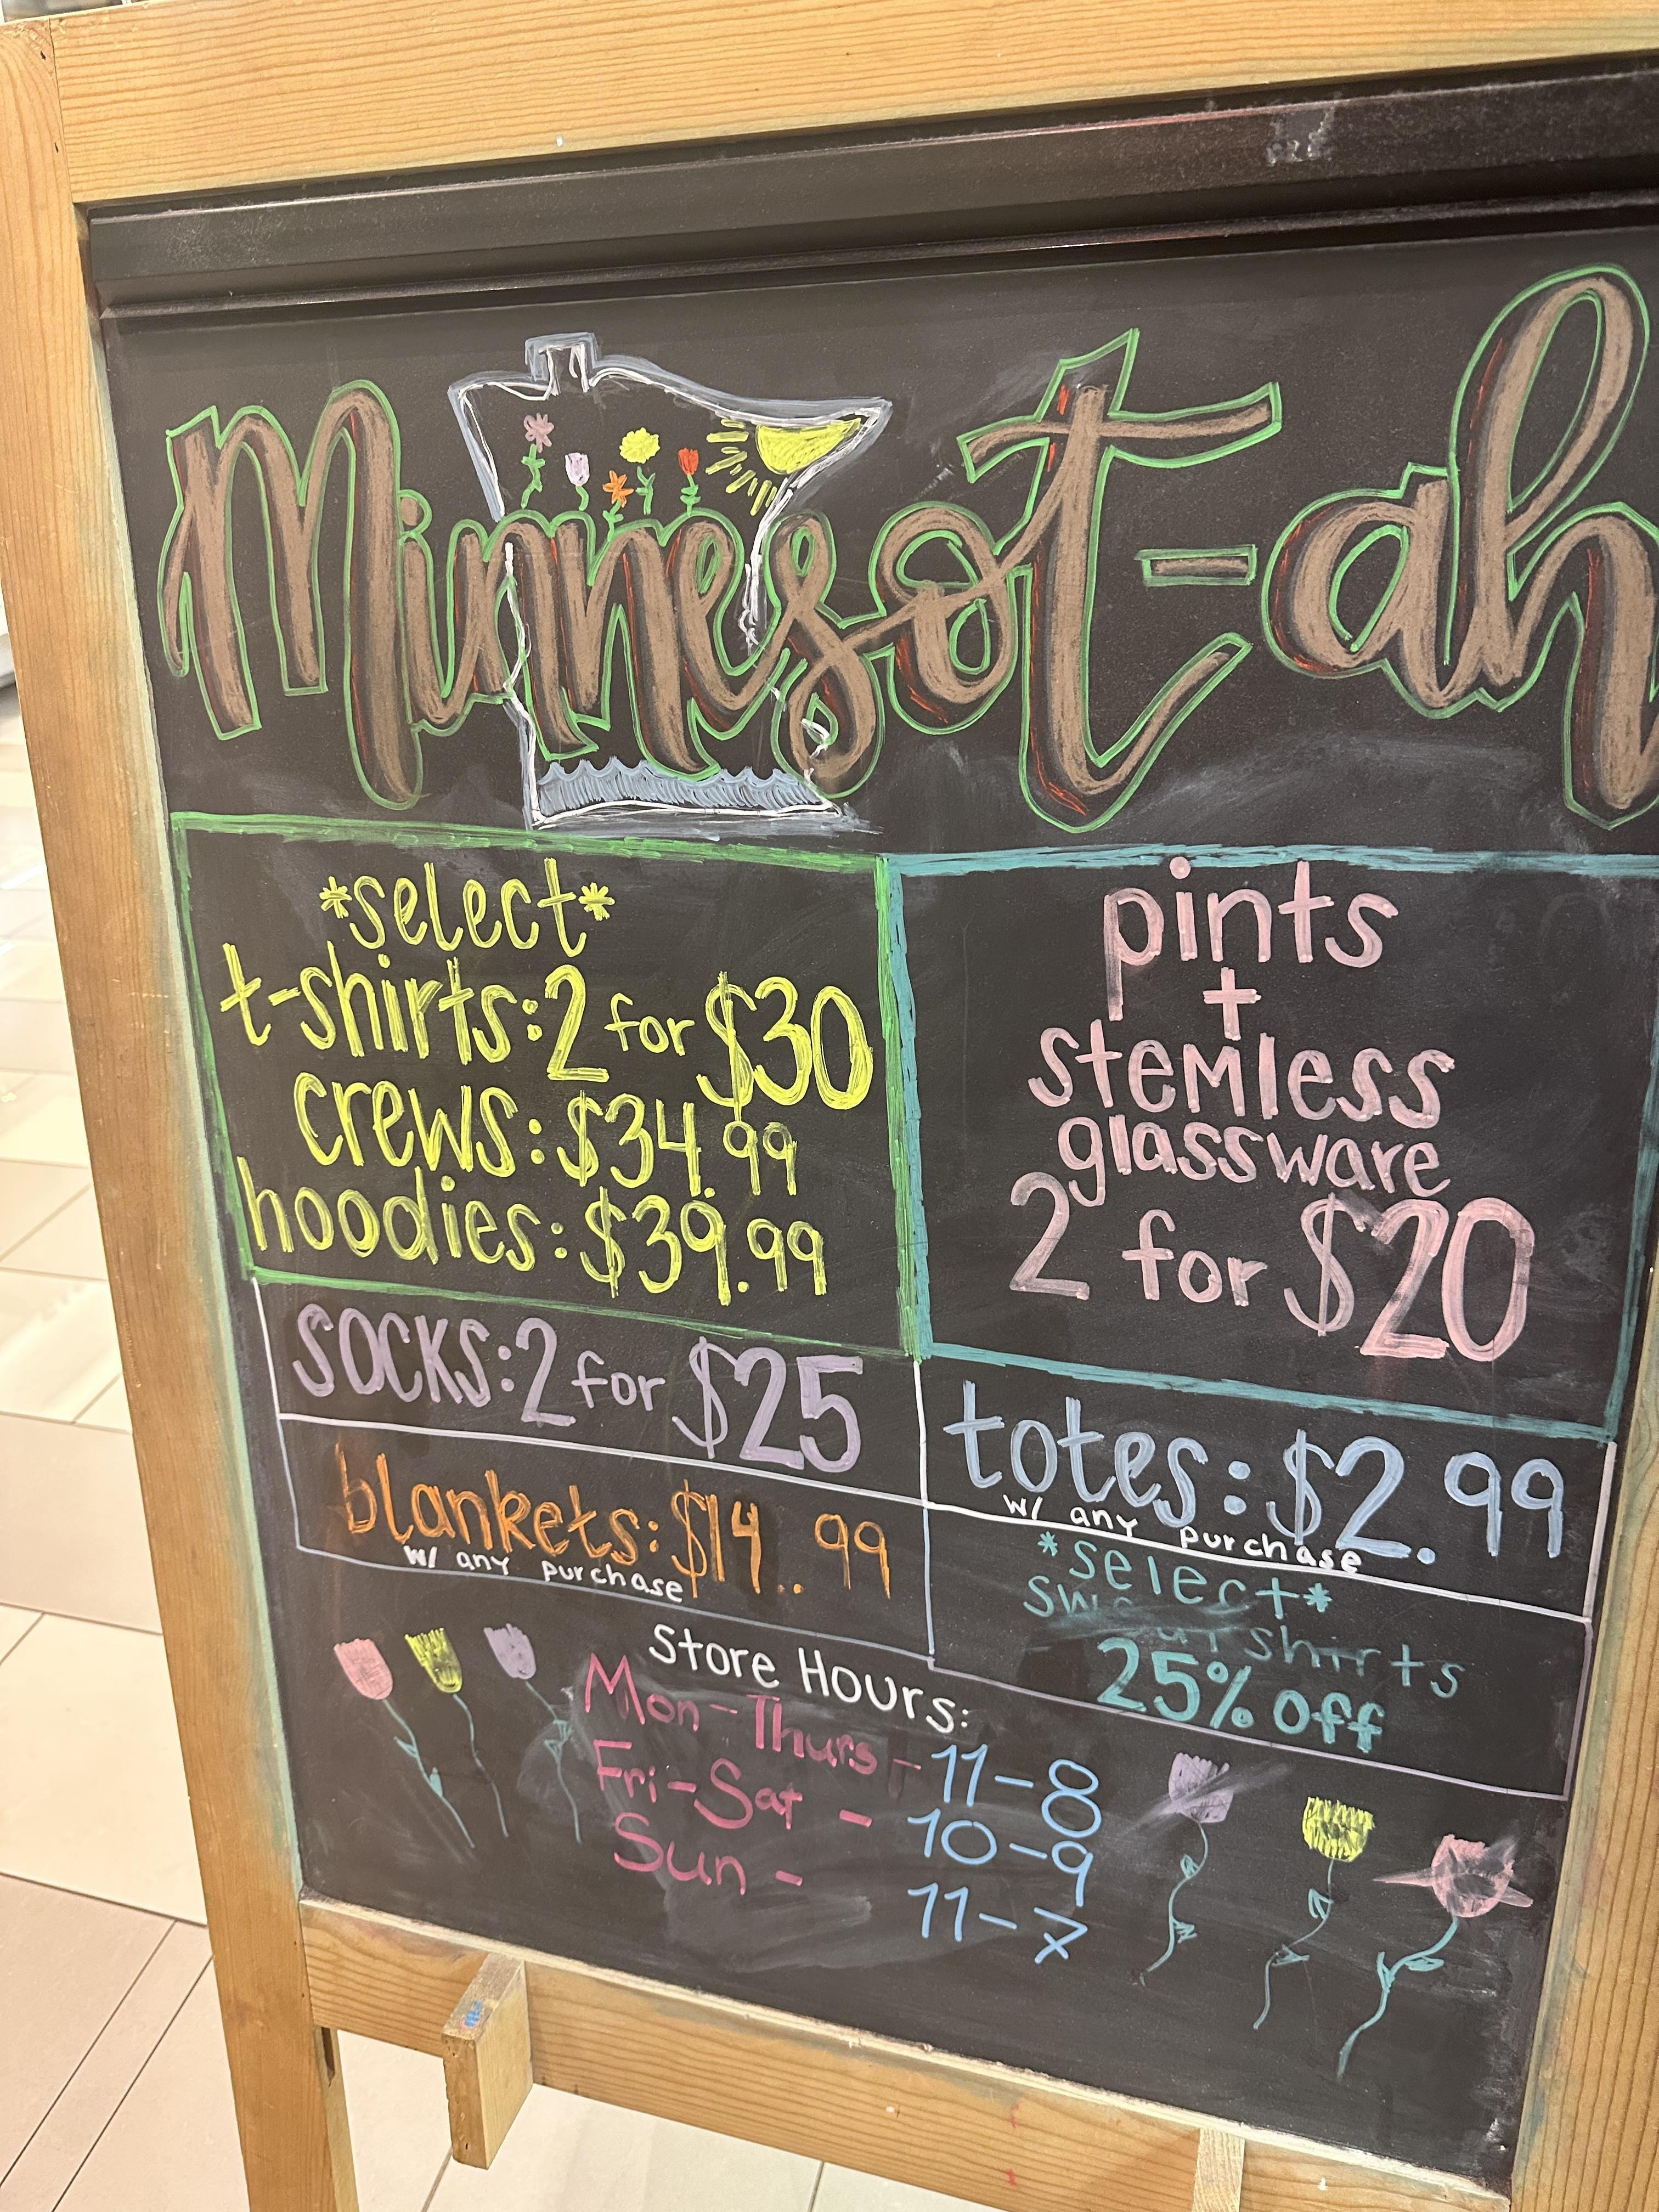 Minnesot-ah
*select*
t-shirts: 2 for $30
crews: $34.99
hoodies: $39.99
pints
+
stemless
glassware
2 for $20
socks: 2 for $25
totes: $2.99
w/ any purchase
blankets: $14..99
w/ any purchase
*select*
shirts
25% off
Store Hours:
Mon-Thurs - 11-8
Fri-Sat - 10-9
Sun - 11-7